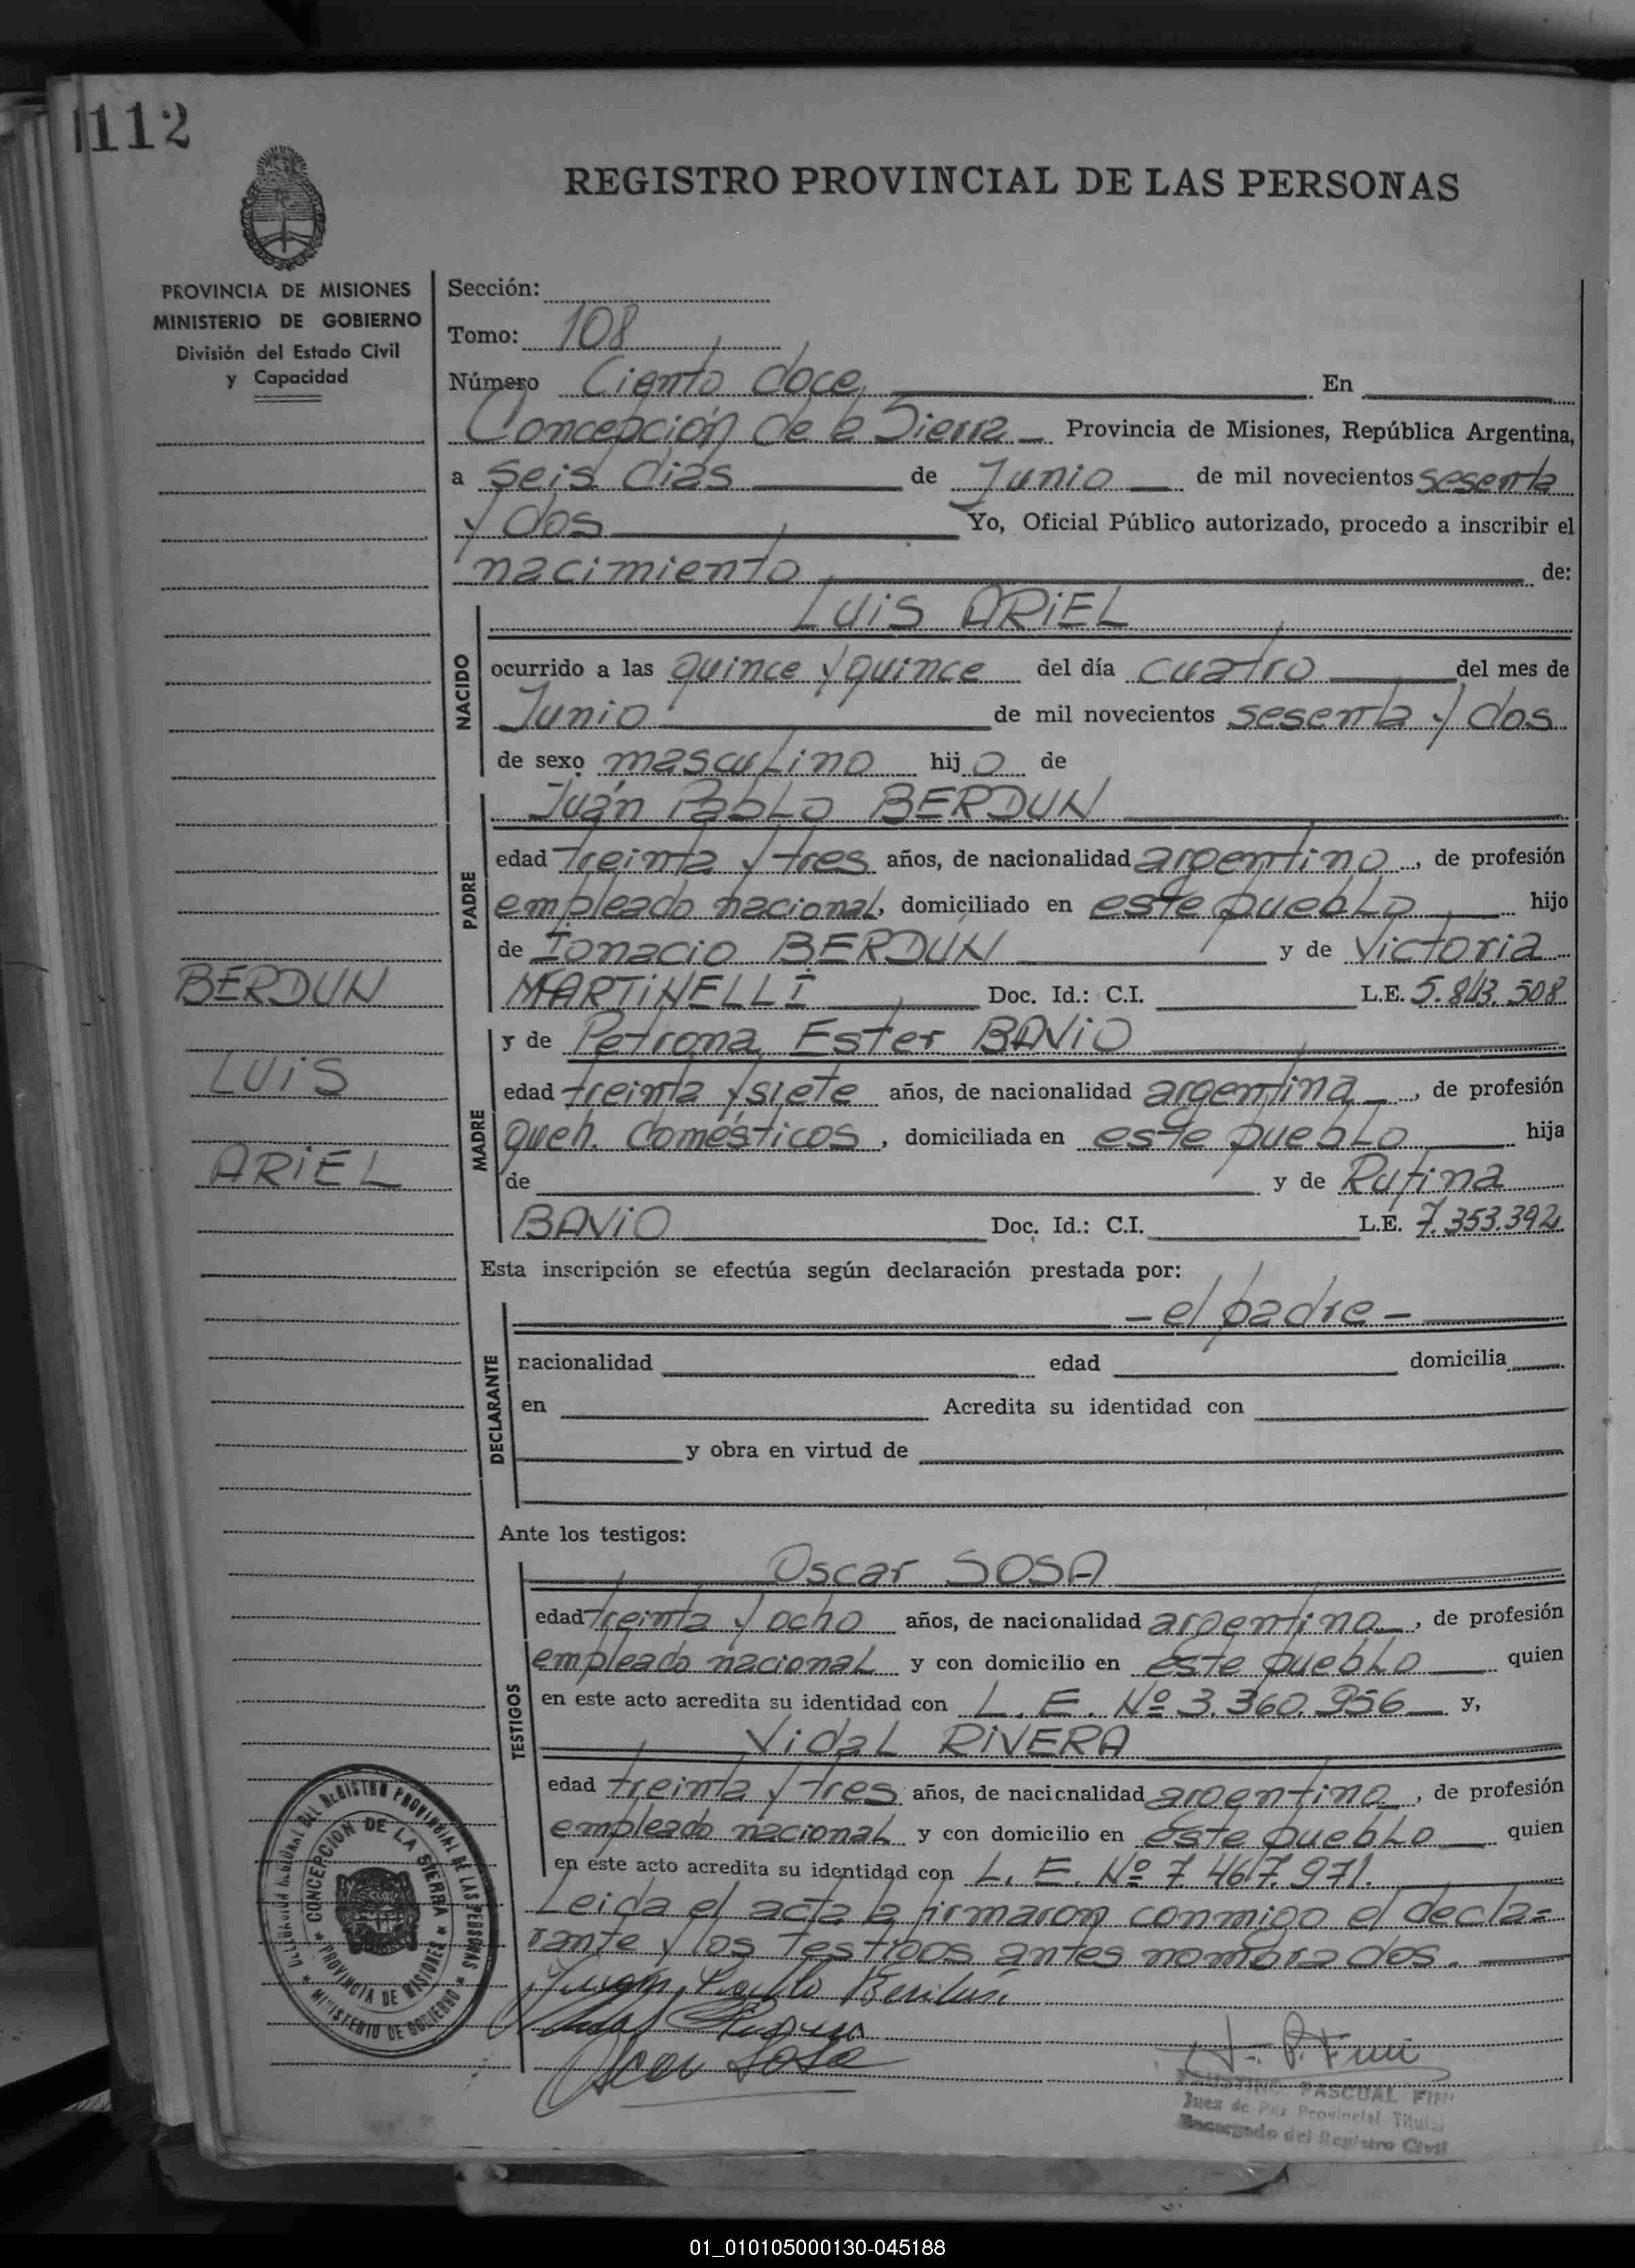 112
REGISTRO PROVINCIAL DE LAS PERSONAS
PROVINCIA DE MISIONES
MINISTERIO DE GOBIERNO
División del Estado Civil
y Capacidad
Sección:
Tomo: 108
Número Ciento doce En
Concepción de la Sierra Provincia de Misiones, República Argentina,
a seis dias de Junio de mil novecientos sesenta
y dos Yo, Oficial Público autorizado, procedo a inscribir el
nacimiento de:
NACIDO
LUIS ARIEL
ocurrido a las quince y quince del día cuatro del mes de
Junio de mil novecientos sesenta y dos
de sexo masculino hijo de
PADRE
Juan Pablo BERDUN
edad treinta y tres años, de nacionalidad argentino, de profesión
empleado nacional, domiciliado en este pueblo hijo
de Ignacio BERDUN y de Victoria
MARTINELLI Doc. Id.: C.I. L.E. 5.813.508
BERDUN
LUIS
ARIEL
MADRE
y de Petrona Ester BAVIO
edad treinta y siete años, de nacionalidad argentina, de profesión
queh. domésticos, domiciliada en este pueblo hija
de y de Rufina
BAVIO Doc. Id.: C.I. L.E. 7.353.392
Esta inscripción se efectúa según declaración prestada por:
DECLARANTE
- el padre -
nacionalidad edad domicilia
en Acredita su identidad con
y obra en virtud de
Ante los testigos:
TESTIGOS
Oscar SOSA
edad treinta y ocho años, de nacionalidad argentino, de profesión
empleado nacional y con domicilio en este pueblo quien
en este acto acredita su identidad con L. E. Nº 3.360.956 y,
Vidal RIVERA
edad treinta y tres años, de nacionalidad argentino, de profesión
empleado nacional y con domicilio en este pueblo quien
en este acto acredita su identidad con L. E. Nº 7.467.971.
Leida el acta la firmaron conmigo el decla=
rante y los testigos antes nombrados.
Juan Pablo Berdún
Oscar Sosa
DEL REGISTRO PROVINCIAL DE LAS PERSONAS
MINISTERIO DE GOBIERNO
CONCEPCION DE LA SIERRA
PROVINCIA DE MISIONES
PASCUAL
Juez de Paz Provincial Titular
Encargado del Registro Civil
01_010105000130-045188